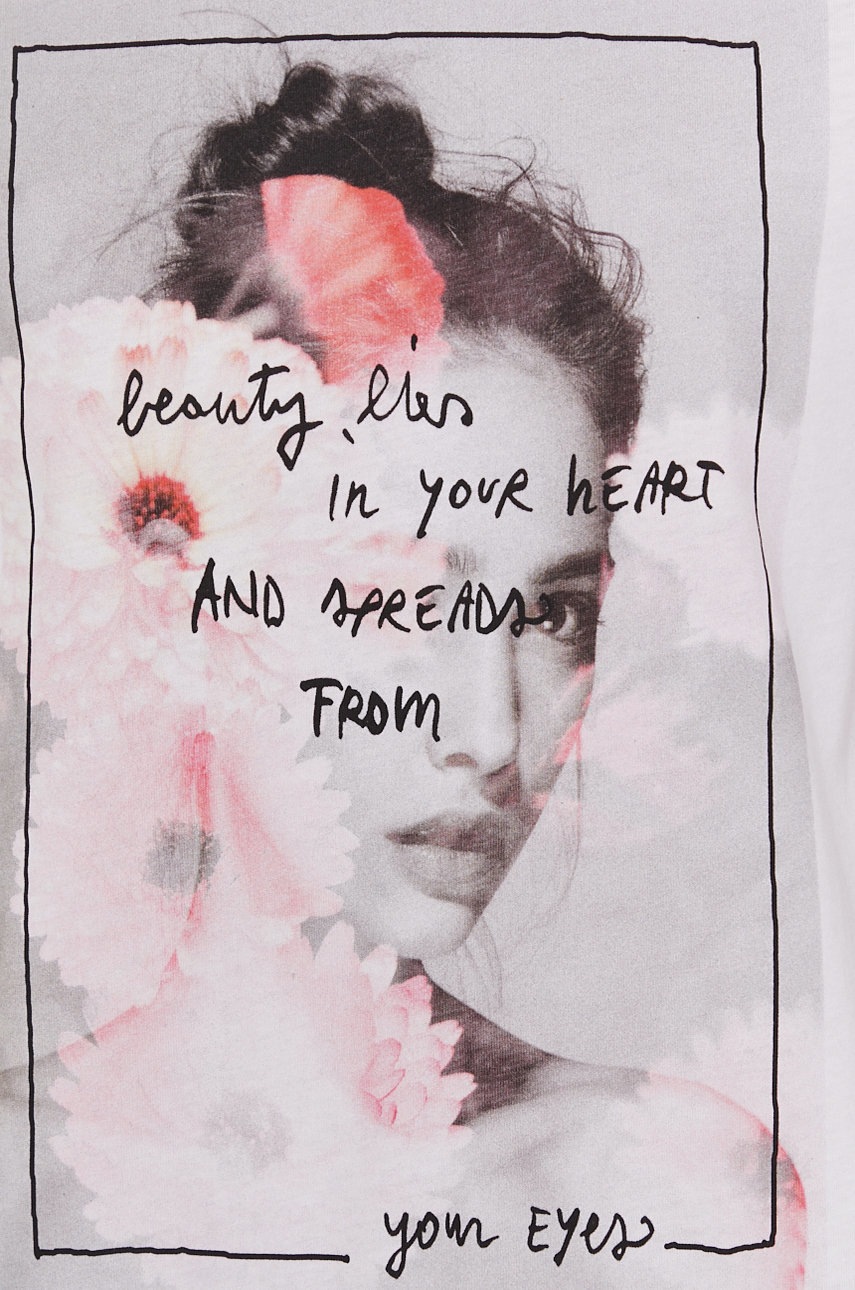 beauty lies
in your hEART
AND spREADs
FROM
your EYes